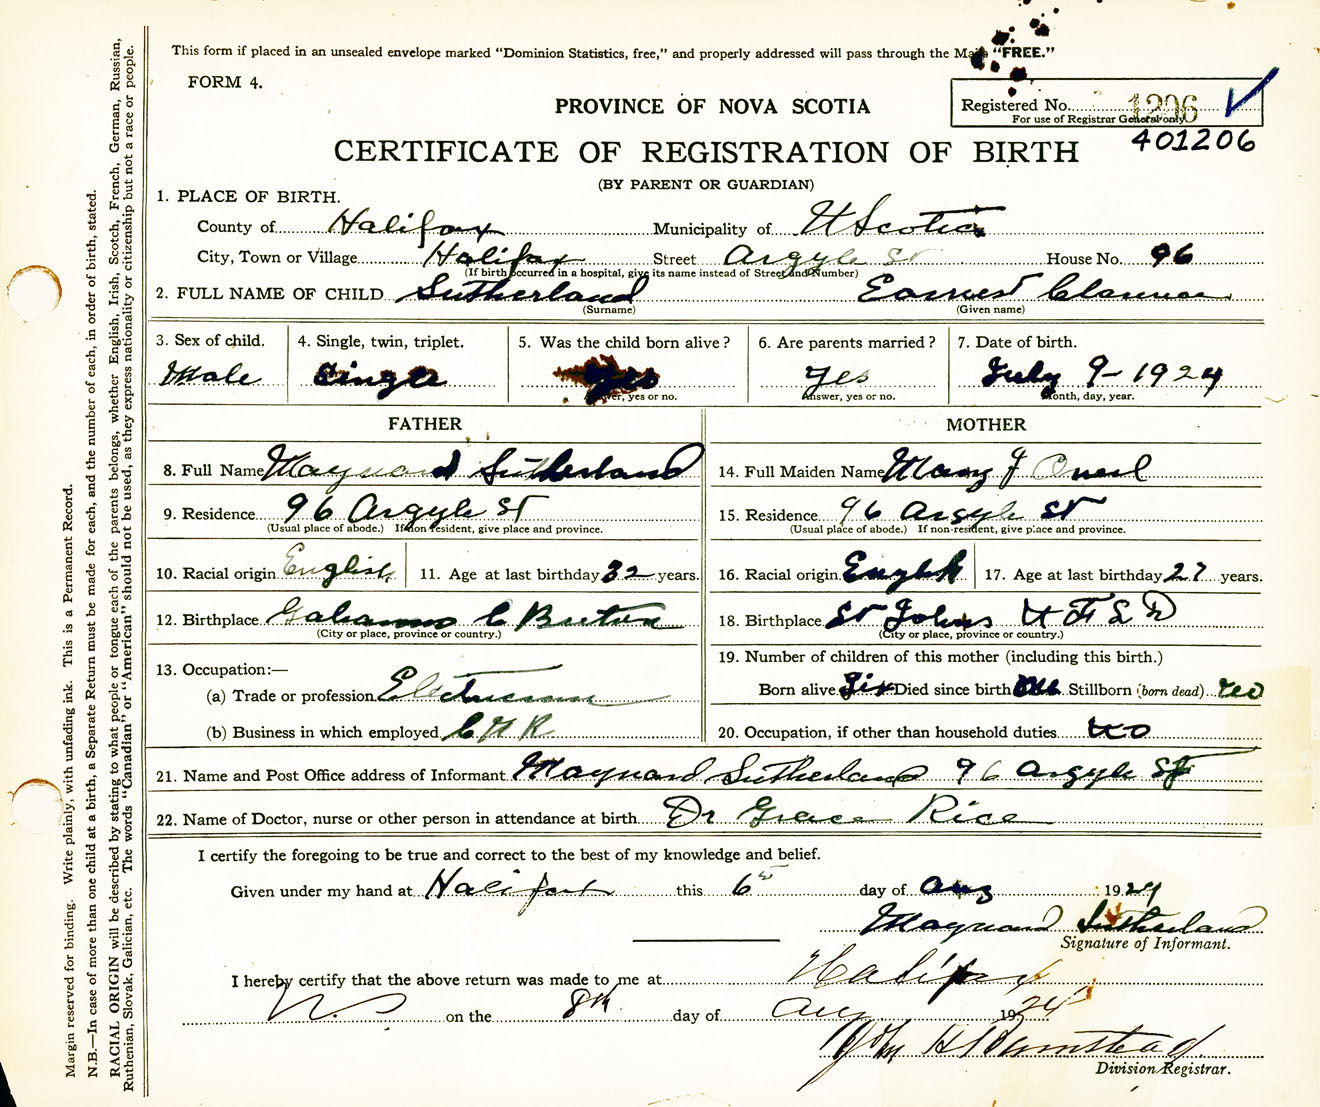 This form if placed in an unsealed envelope marked "Dominion Statistics, free," and properly addressed will pass through the "FREE."
FORM 4.
PROVINCE OF NOVA SCOTIA
Registered No. 1206
For use of Registrar General only
401206
CERTIFICATE OF REGISTRATION OF BIRTH
(BY PARENT OR GUARDIAN)
1. PLACE OF BIRTH.
County of Halifax Municipality of N Scotia
City, Town or Village Halifax Street Argyle St House No. 96
(If birth occurred in a hospital, give its name instead of Street and Number)
2. FULL NAME OF CHILD Sutherland Earnest Clarence
(Surname) (Given name)
3. Sex of child. 4. Single, twin, triplet. 5. Was the child born alive? 6. Are parents married? 7. Date of birth.
Male Single Yes Yes July 9-1924
Answer, yes or no. Answer, yes or no. Month, day, year.
FATHER MOTHER
8. Full Name Maynard Sutherland 14. Full Maiden Name Mary J Oneil
9. Residence 96 Argyle St 15. Residence 96 Argyle St
(Usual place of abode.) If non-resident, give place and province. (Usual place of abode.) If non-resident, give place and province.
10. Racial origin English 11. Age at last birthday 32 years. 16. Racial origin English 17. Age at last birthday 27 years.
12. Birthplace C Breton 18. Birthplace St Johns N F L D
(City or place, province or country.) (City or place, province or country.)
13. Occupation:— 19. Number of children of this mother (including this birth.)
(a) Trade or profession Electrician Born alive Six Died since birth Stillborn (born dead)
(b) Business in which employed C N R 20. Occupation, if other than household duties No
21. Name and Post Office address of Informant Maynard Sutherland 96 Argyle St
22. Name of Doctor, nurse or other person in attendance at birth Dr Grace Rice
I certify the foregoing to be true and correct to the best of my knowledge and belief.
Given under my hand at Halifax this 6 day of Aug 1924
Maynard Sutherland
Signature of Informant.
I hereby certify that the above return was made to me at Halifax
N.S on the 8th day of Aug 1924
John H Barnstead
Division Registrar.
Margin reserved for binding. Write plainly, with unfading ink. This is a Permanent Record.
N.B.—In case of more than one child at a birth, a Separate Return must be made for each, and the number of each, in order of birth, stated.
RACIAL ORIGIN will be described by stating to what people or tongue each of the parents belongs, whether English, Irish, Scotch, French, German, Russian,
Ruthenian, Slovak, Galician, etc. The words "Canadian" or "American" should not be used, as they express nationality or citizenship but not a race or people.